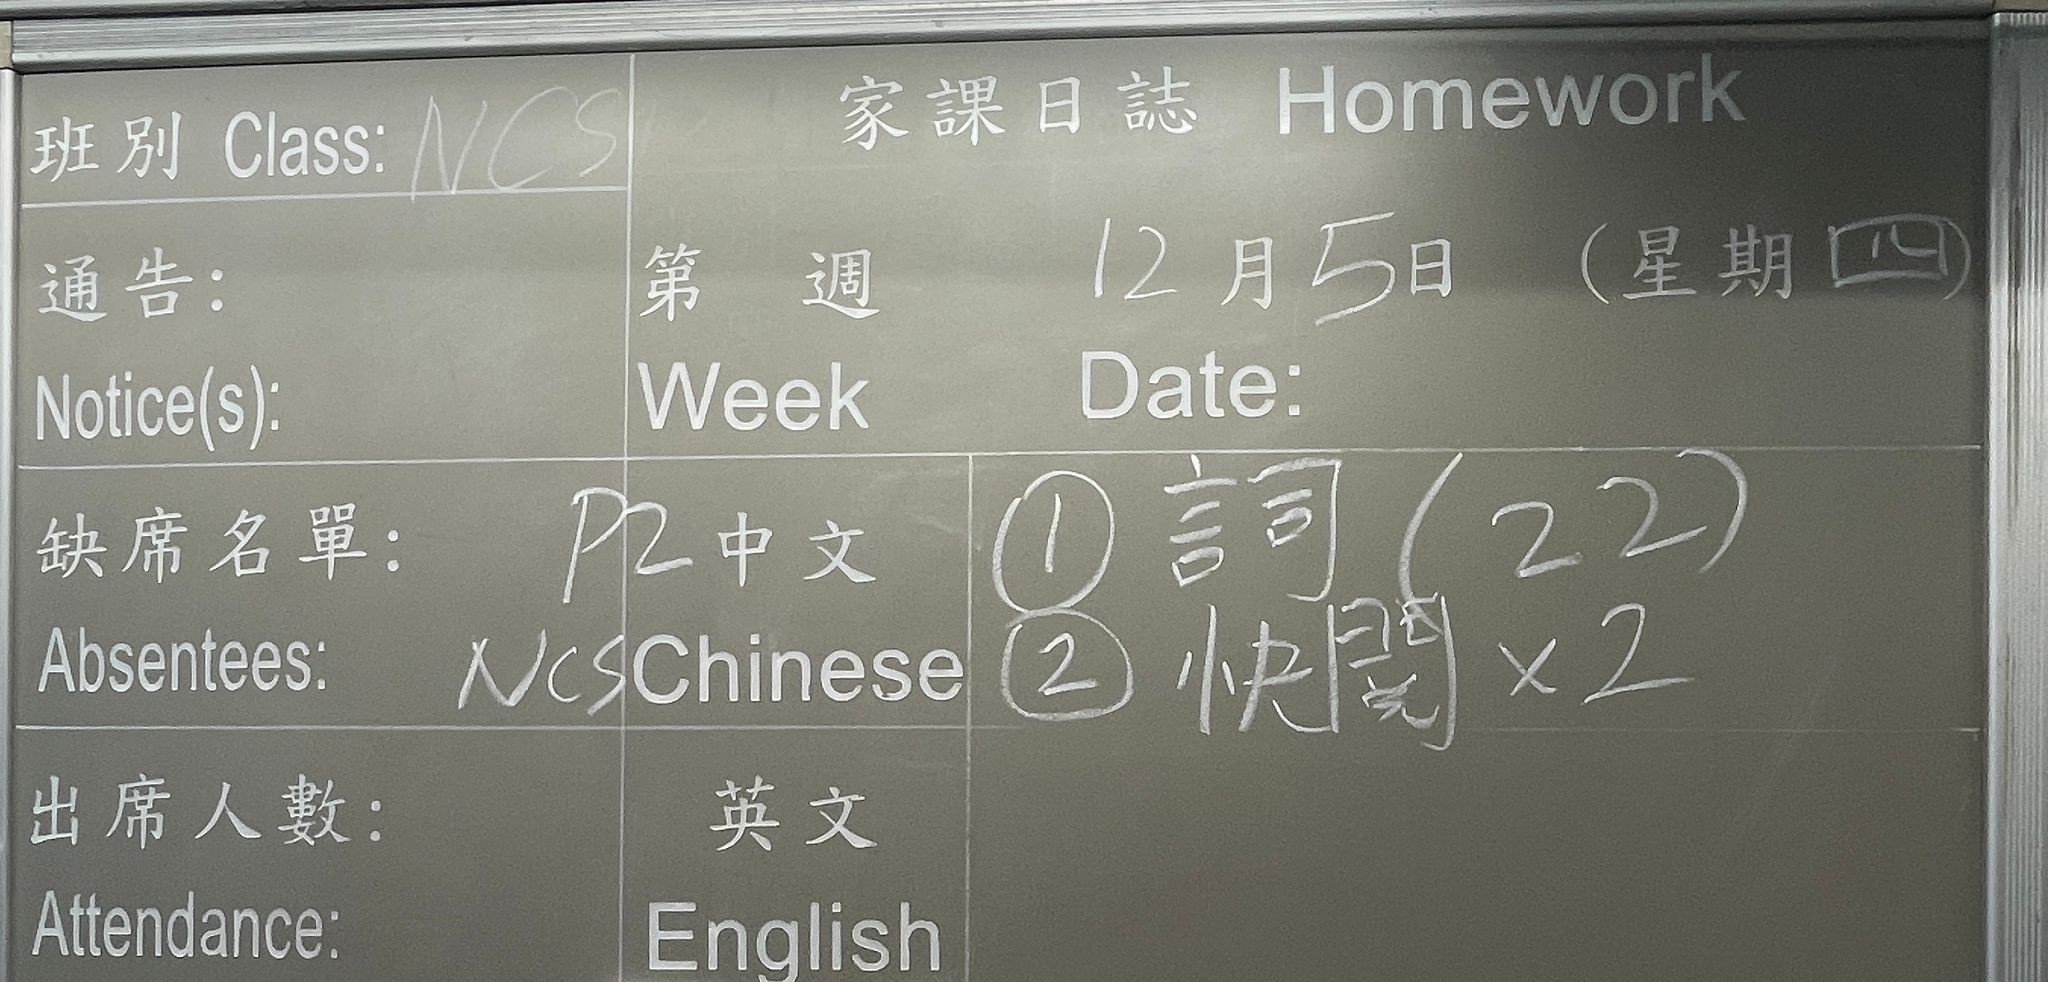 班別 Class: NCS
家課日誌 Homework
通告:
Notice(s):
第 週 12月5日 (星期四)
Week Date:
缺席名單:
Absentees:
P2 中文 ① 詞 (22)
NCS Chinese ② 快閱 x2
出席人數:
Attendance:
英文
English